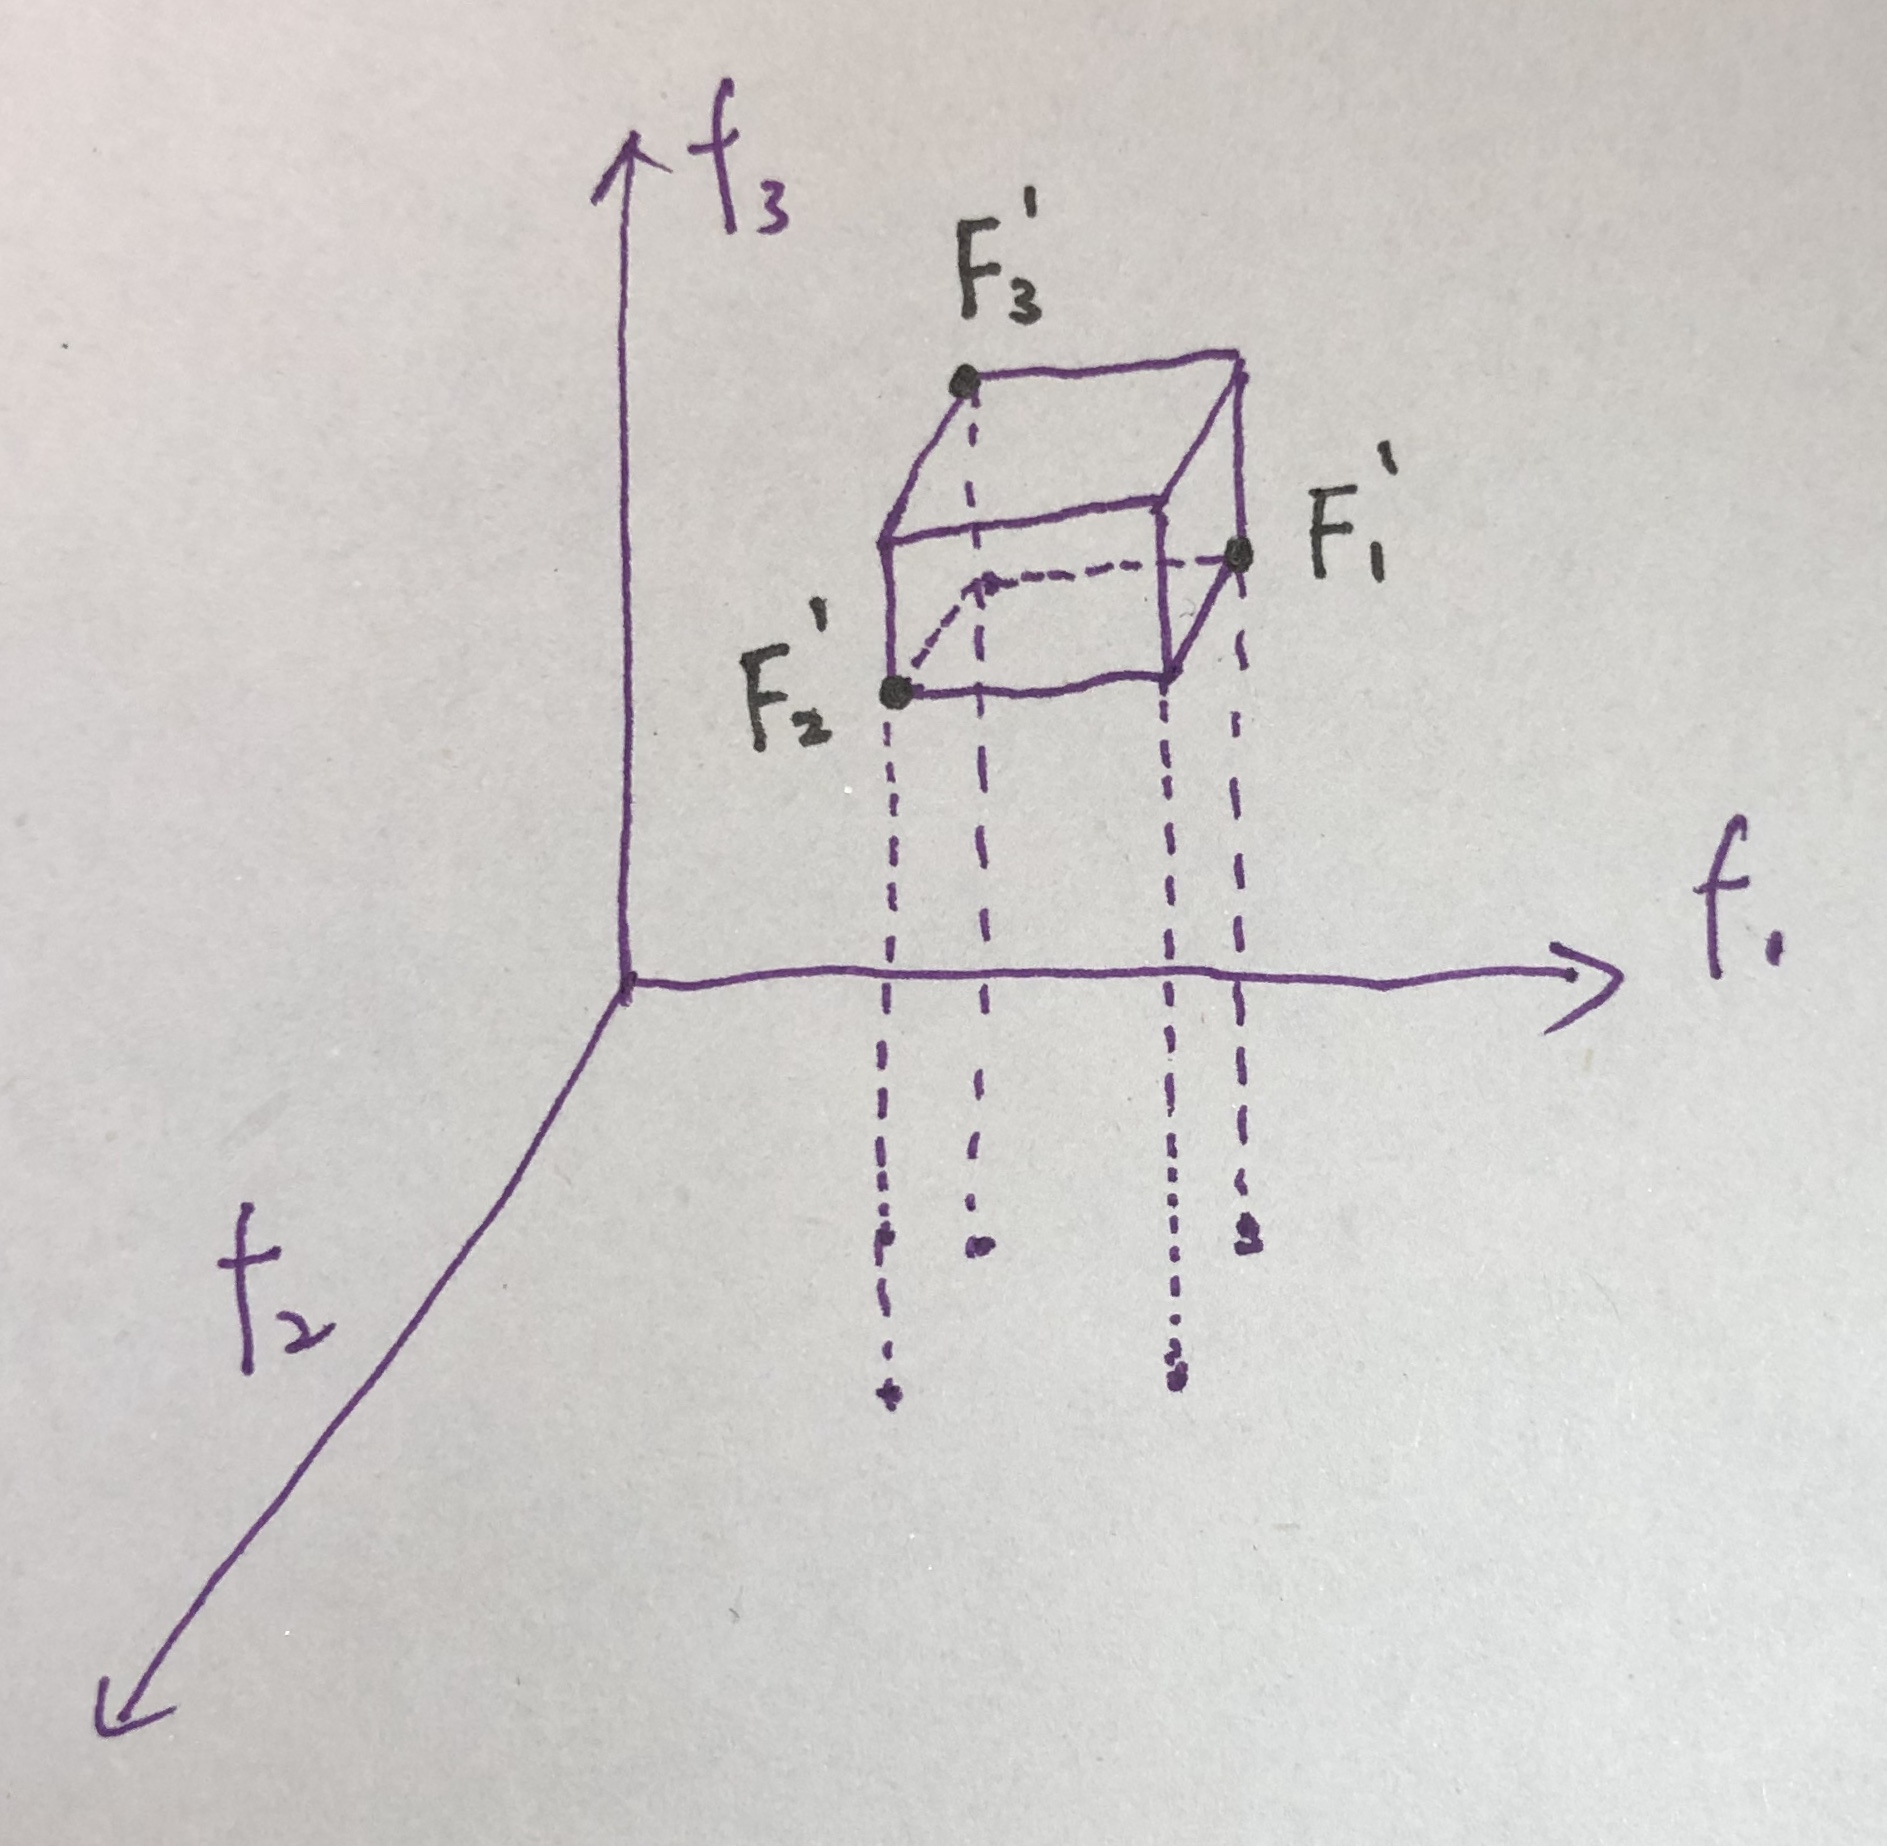 f₃
F₃'
F₁'
F₂'
f₁
f₂